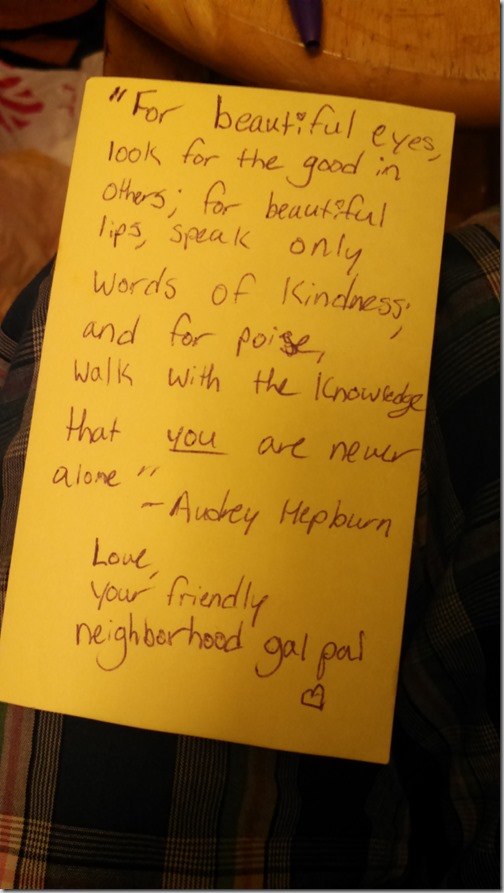 "For beautiful eyes,
look for the good in
others; for beautiful
lips, speak only
words of kindness;
and for poise,
walk with the knowledge
that you are never
alone"
- Audrey Hepburn
Love,
your friendly
neighborhood gal pal